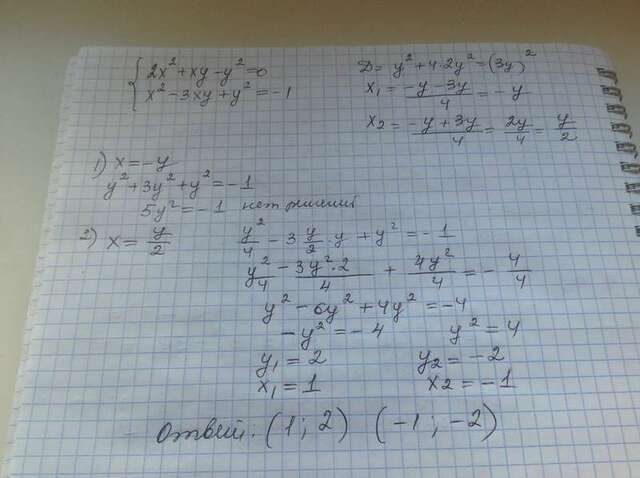 { 2x² + xy - y² = 0
x² - 3xy + y² = -1
D = y² + 4·2y² = (3y)²
x₁ = (-y - 3y)/4 = -y
x₂ = (-y + 3y)/4 = 2y/4 = y/2
1) x = -y
y² + 3y² + y² = -1
5y² = -1 нет решений
2) x = y/2
y²/4 - 3 y/2 · y + y² = -1
y²/4 - 3y²·2/4 + 4y²/4 = - 4/4
y² - 6y² + 4y² = -4
-y² = -4 y² = 4
y₁ = 2 y₂ = -2
x₁ = 1 x₂ = -1
Ответ: (1; 2) (-1; -2)